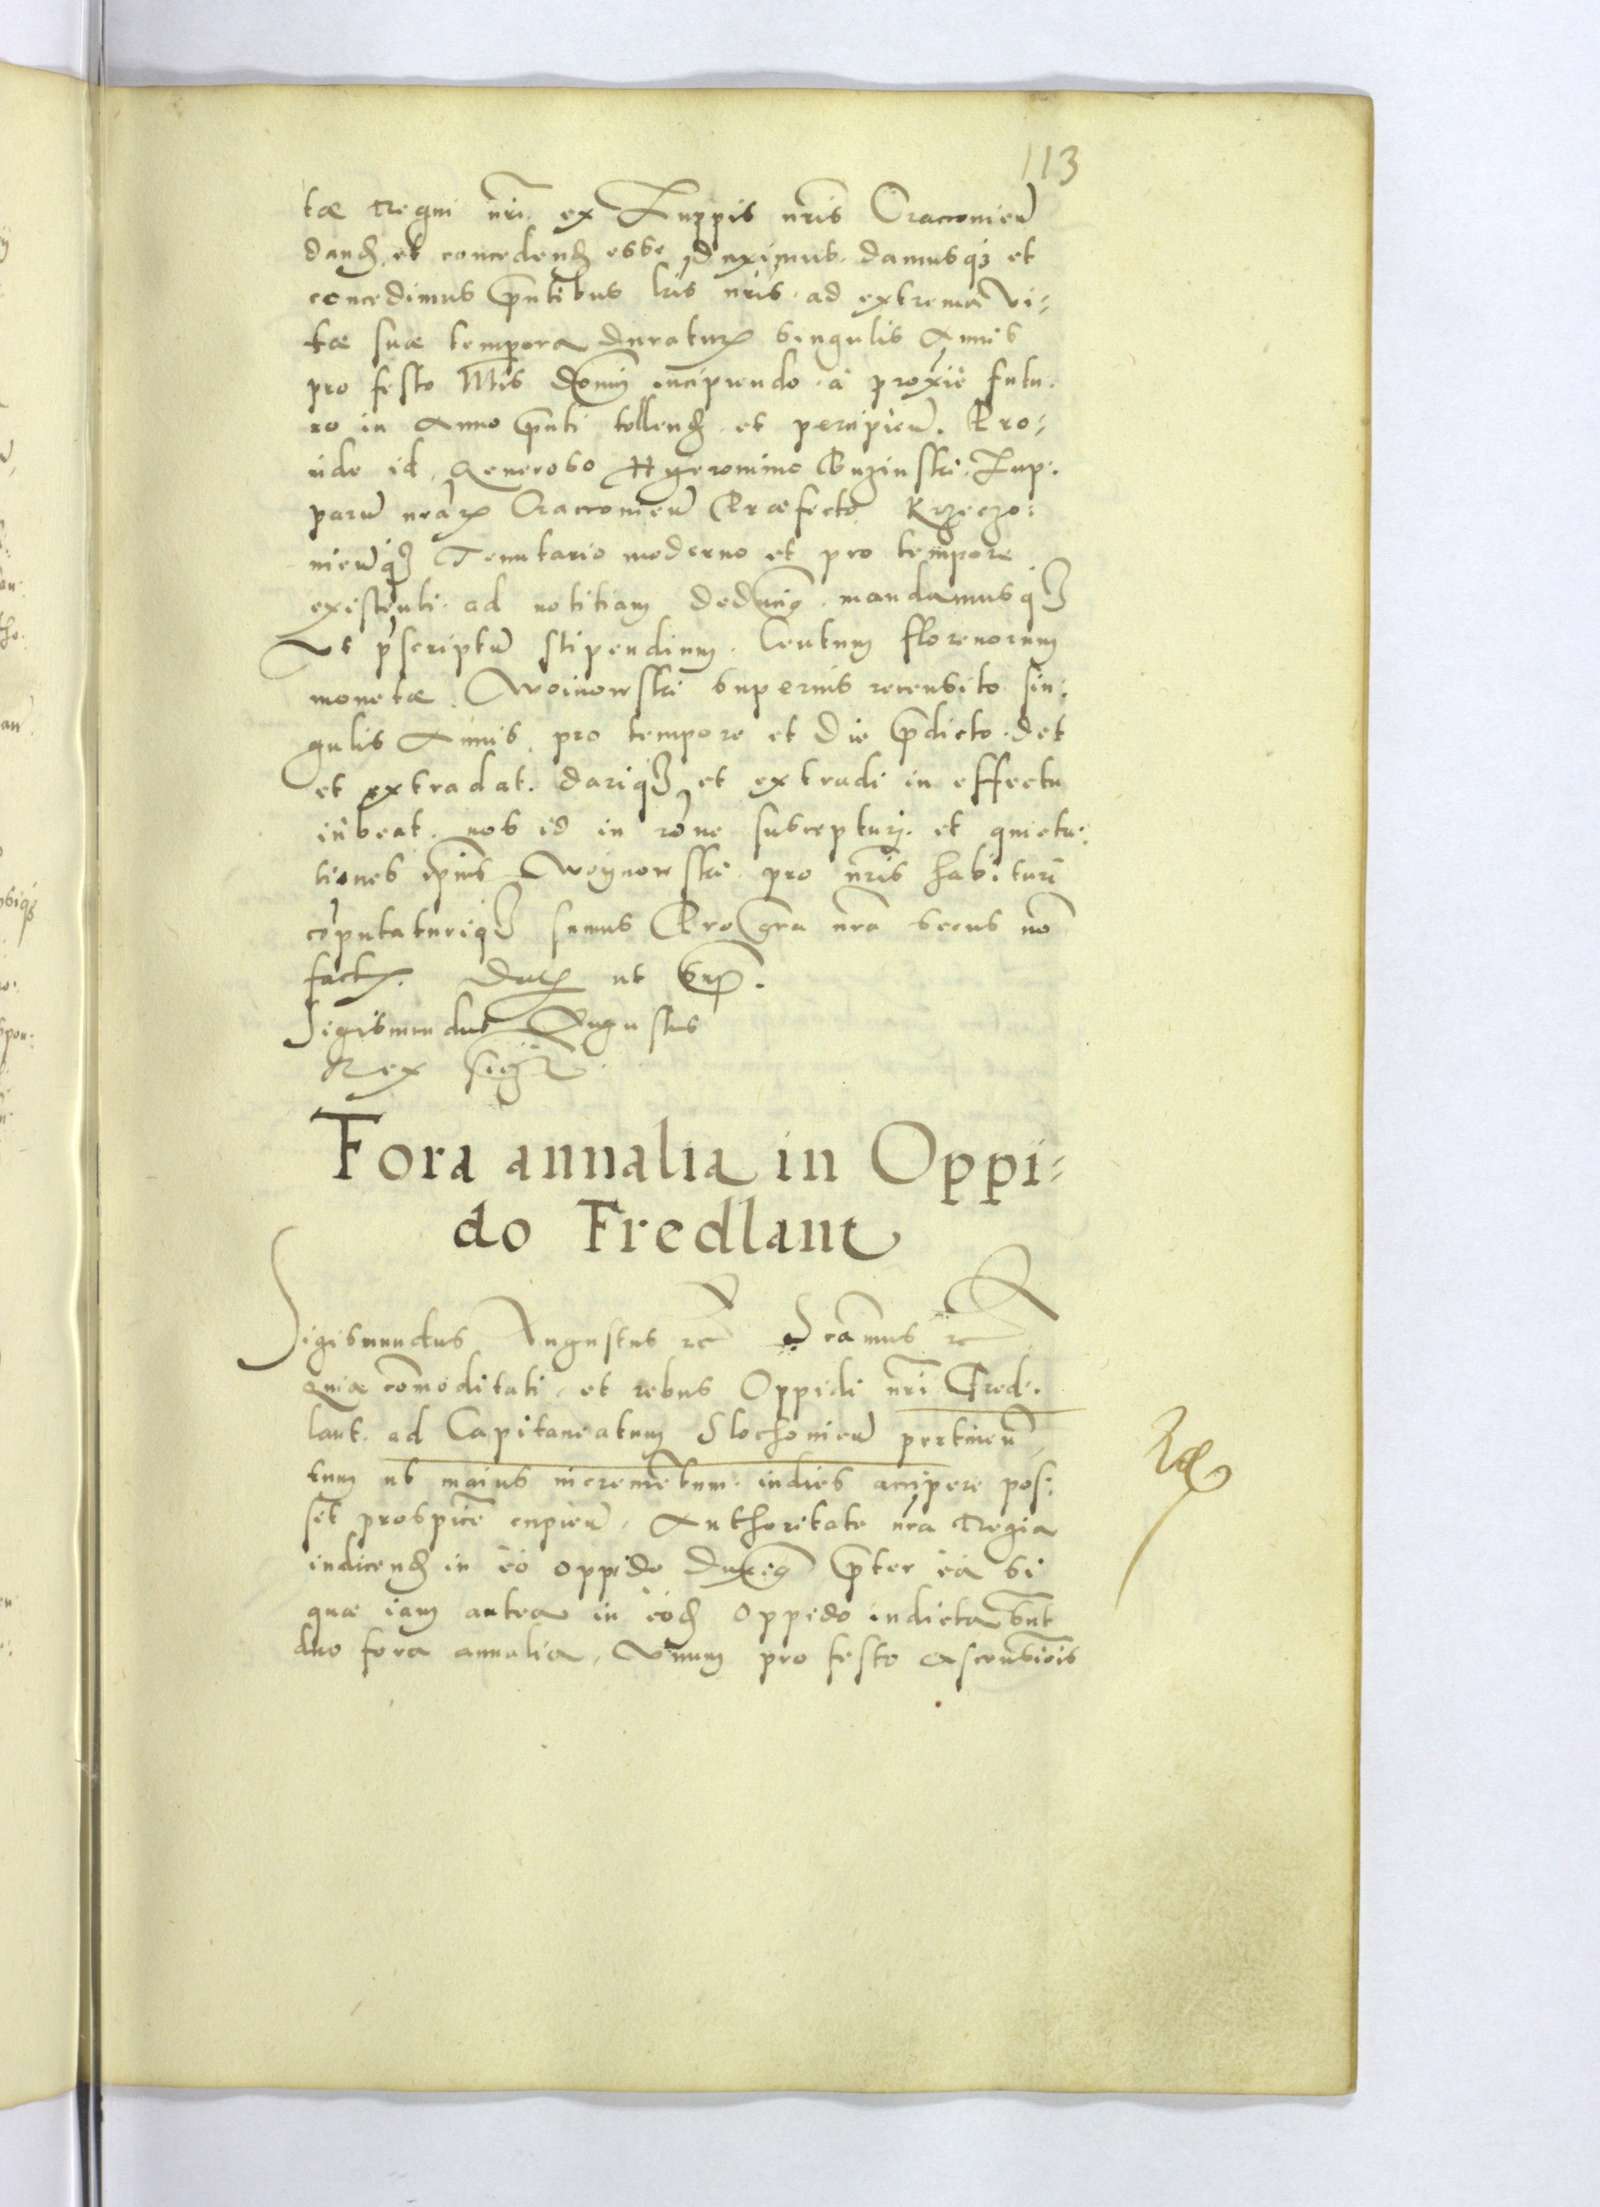 113
tæ Regni nr̃i ex Zuppis nr̃is Cracovien̄
dand̃ et concedend̃ esse duximus. damusq3 et
concedimus p̃ntibus lr̃is nr̃is. ad extrema vi=
tæ suæ tempora duratur̃ singulis Annis
pro festo Nttis Domini incipiendo à proxiē futu.
ro in Anno p̃nti tollend̃ et percipien̄. Pro=
inde id, Generoso Hyeronimo Buzinski. Zup:
parū nr̃ar̃ Cracovien̄ Præfecto Krzeczo:
nien̄q3 Tenutario moderno et pro tempore
existenti. ad notitiam deducim9. mandamusq3
Ut p̃scriptū stipendium. Centum florenorum
monetæ. Woinowski superius recensito sin:
gulis Annis, pro tempore et Die p̃dicto det
et extradat. dariq3 et extradi in effectu
iubeat. nos id in rõne suscepturi. et quieta:
tiones ip̃ius Woynowski pro nr̃is habituri
cõputaturiq3 sumus Pro gr̃a nr̃a secus nõ
factur̃. Dat̃ ut sup̃.
Sigismundus Augustus
Rex sig̃t
Fora annalia in Oppi=
do Fredlant
Sigismundus Augustus rc Sc̃amus rc Q
Quia cõmoditati, et rebus Oppidi nr̃i Fred:
lant. ad Capitaneatum Slochonien̄ pertinen̄
tum ut maius incremẽtum. indies accipere pos:
set prospicẽ cupien̄. Authoritate nr̃a Regia
indicend̃ in eó oppido duxim9 p̃ter ea si
quæ iam antea in eod̃ Oppido indicta s̃nt
duo fora annalia, Unum pro festo Ascensiõis